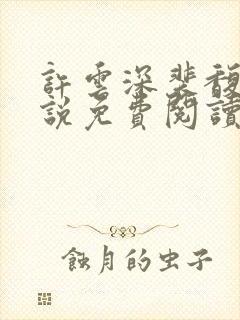 許雲深裴馥
說免費閱讀
蝕月的虫子